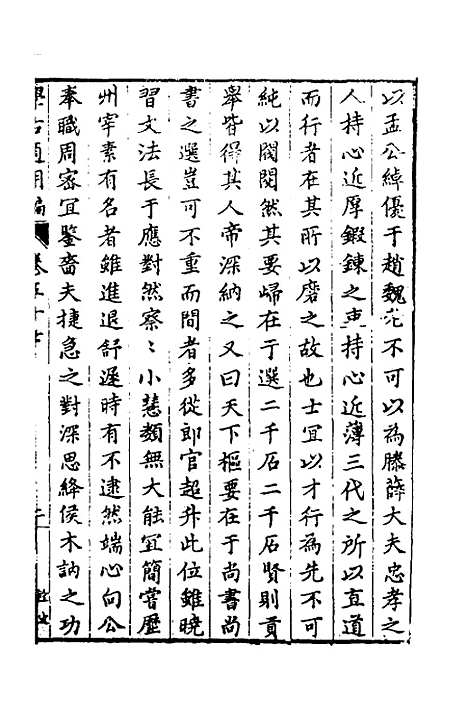 以孟公綽優于趙魏老不可以為滕薛大夫忠孝之
人持心近厚鍛鍊之吏持心近薄三代之所以直道
而行者在其所以磨之故也士宜以才行為先不可
純以閥閱然其要歸在于選二千石二千石賢則貢
舉皆得其人帝深納之又曰天下樞要在于尚書尚
書之選豈可不重而間者多從郎官超升此位雖曉
習文法長于應對然察〻小慧類無大能宜簡嘗歷
州宰素有名者雖進退舒遲時有不逮然端心向公
奉職周密宜鑒嗇夫捷急之對深思絳侯木訥之功
學古適用編
卷五十